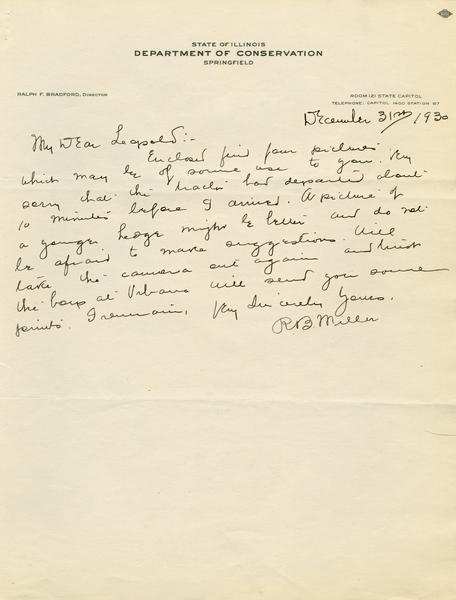 STATE OF ILLINOIS
DEPARTMENT OF CONSERVATION
SPRINGFIELD
RALPH F. BRADFORD, DIRECTOR
ROOM 121 STATE CAPITOL
TELEPHONE: CAPITOL 1400 STATION 67
December 31st, 1930
My Dear Leopold:-
Enclosed find four pictures
which may be of some use to you. Very
sorry that the tractor had departed about
10 minutes before I arrived. A picture of
a younger hedge might be better and do not
be afraid to make suggestions. Will
take the camera out again and trust
the boys at Urbana will send you some
prints. I remain, Very Sincerely Yours,
R.B. Miller